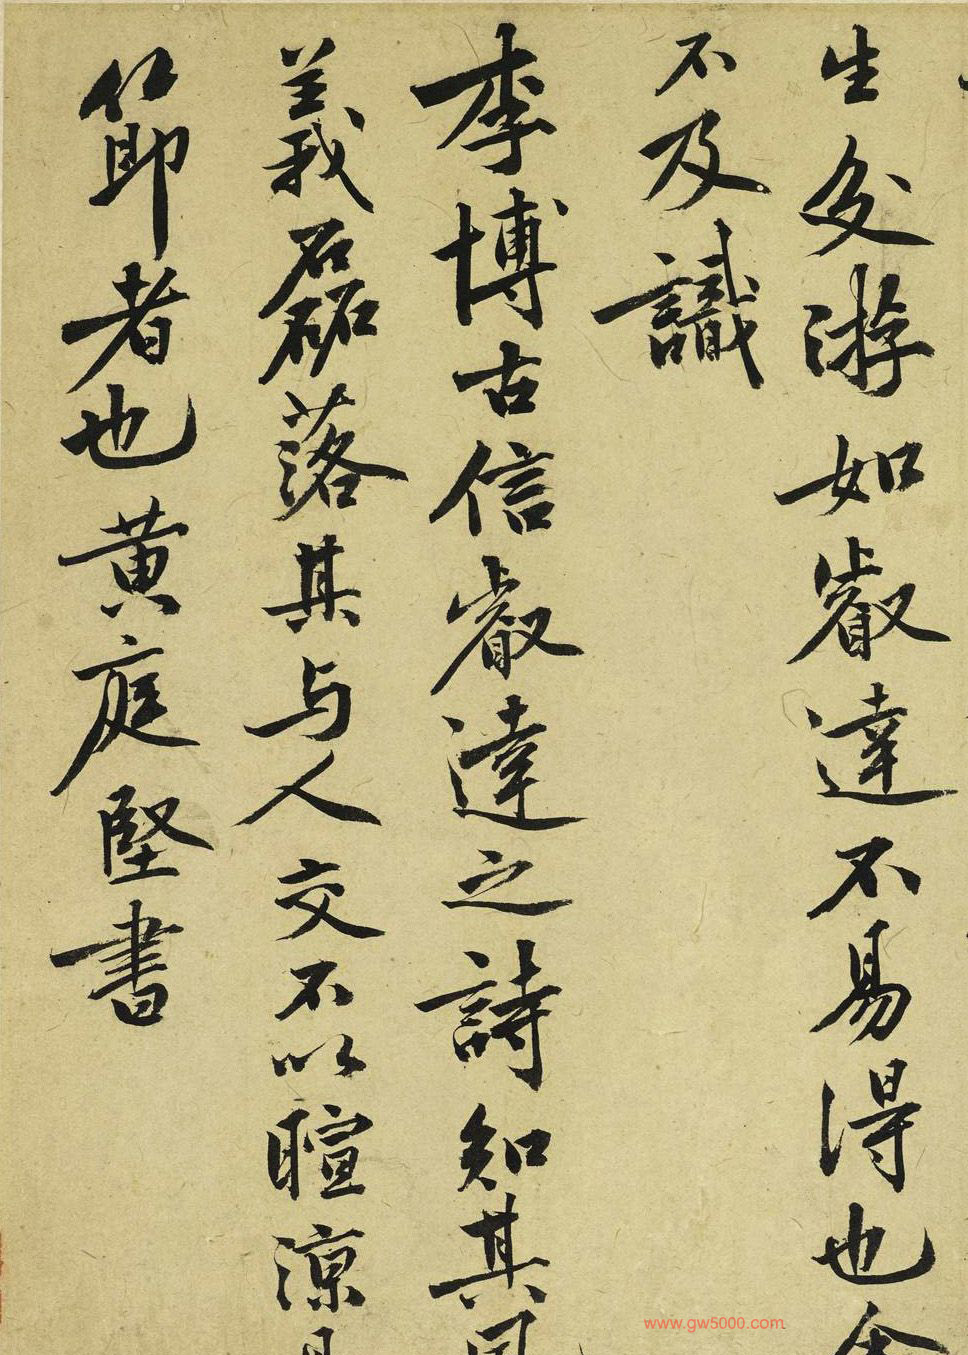 生交游如叡達不易得也余
不及識
李博古信叡達之詩知其風
義磊落其与人交不以暄涼
節者也黄庭堅書
www.gw5000.com